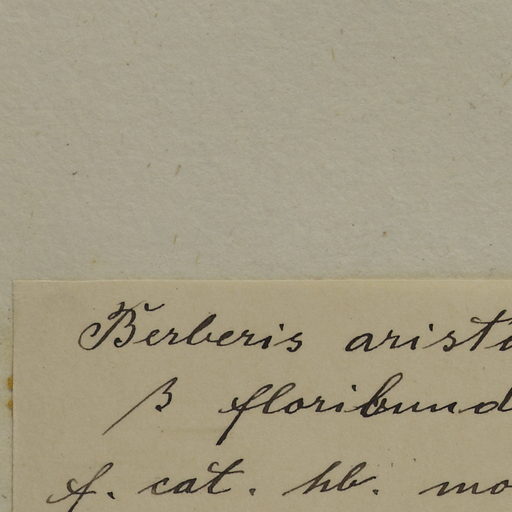 Berberis arist
β floribund
f. cat. hb. mo